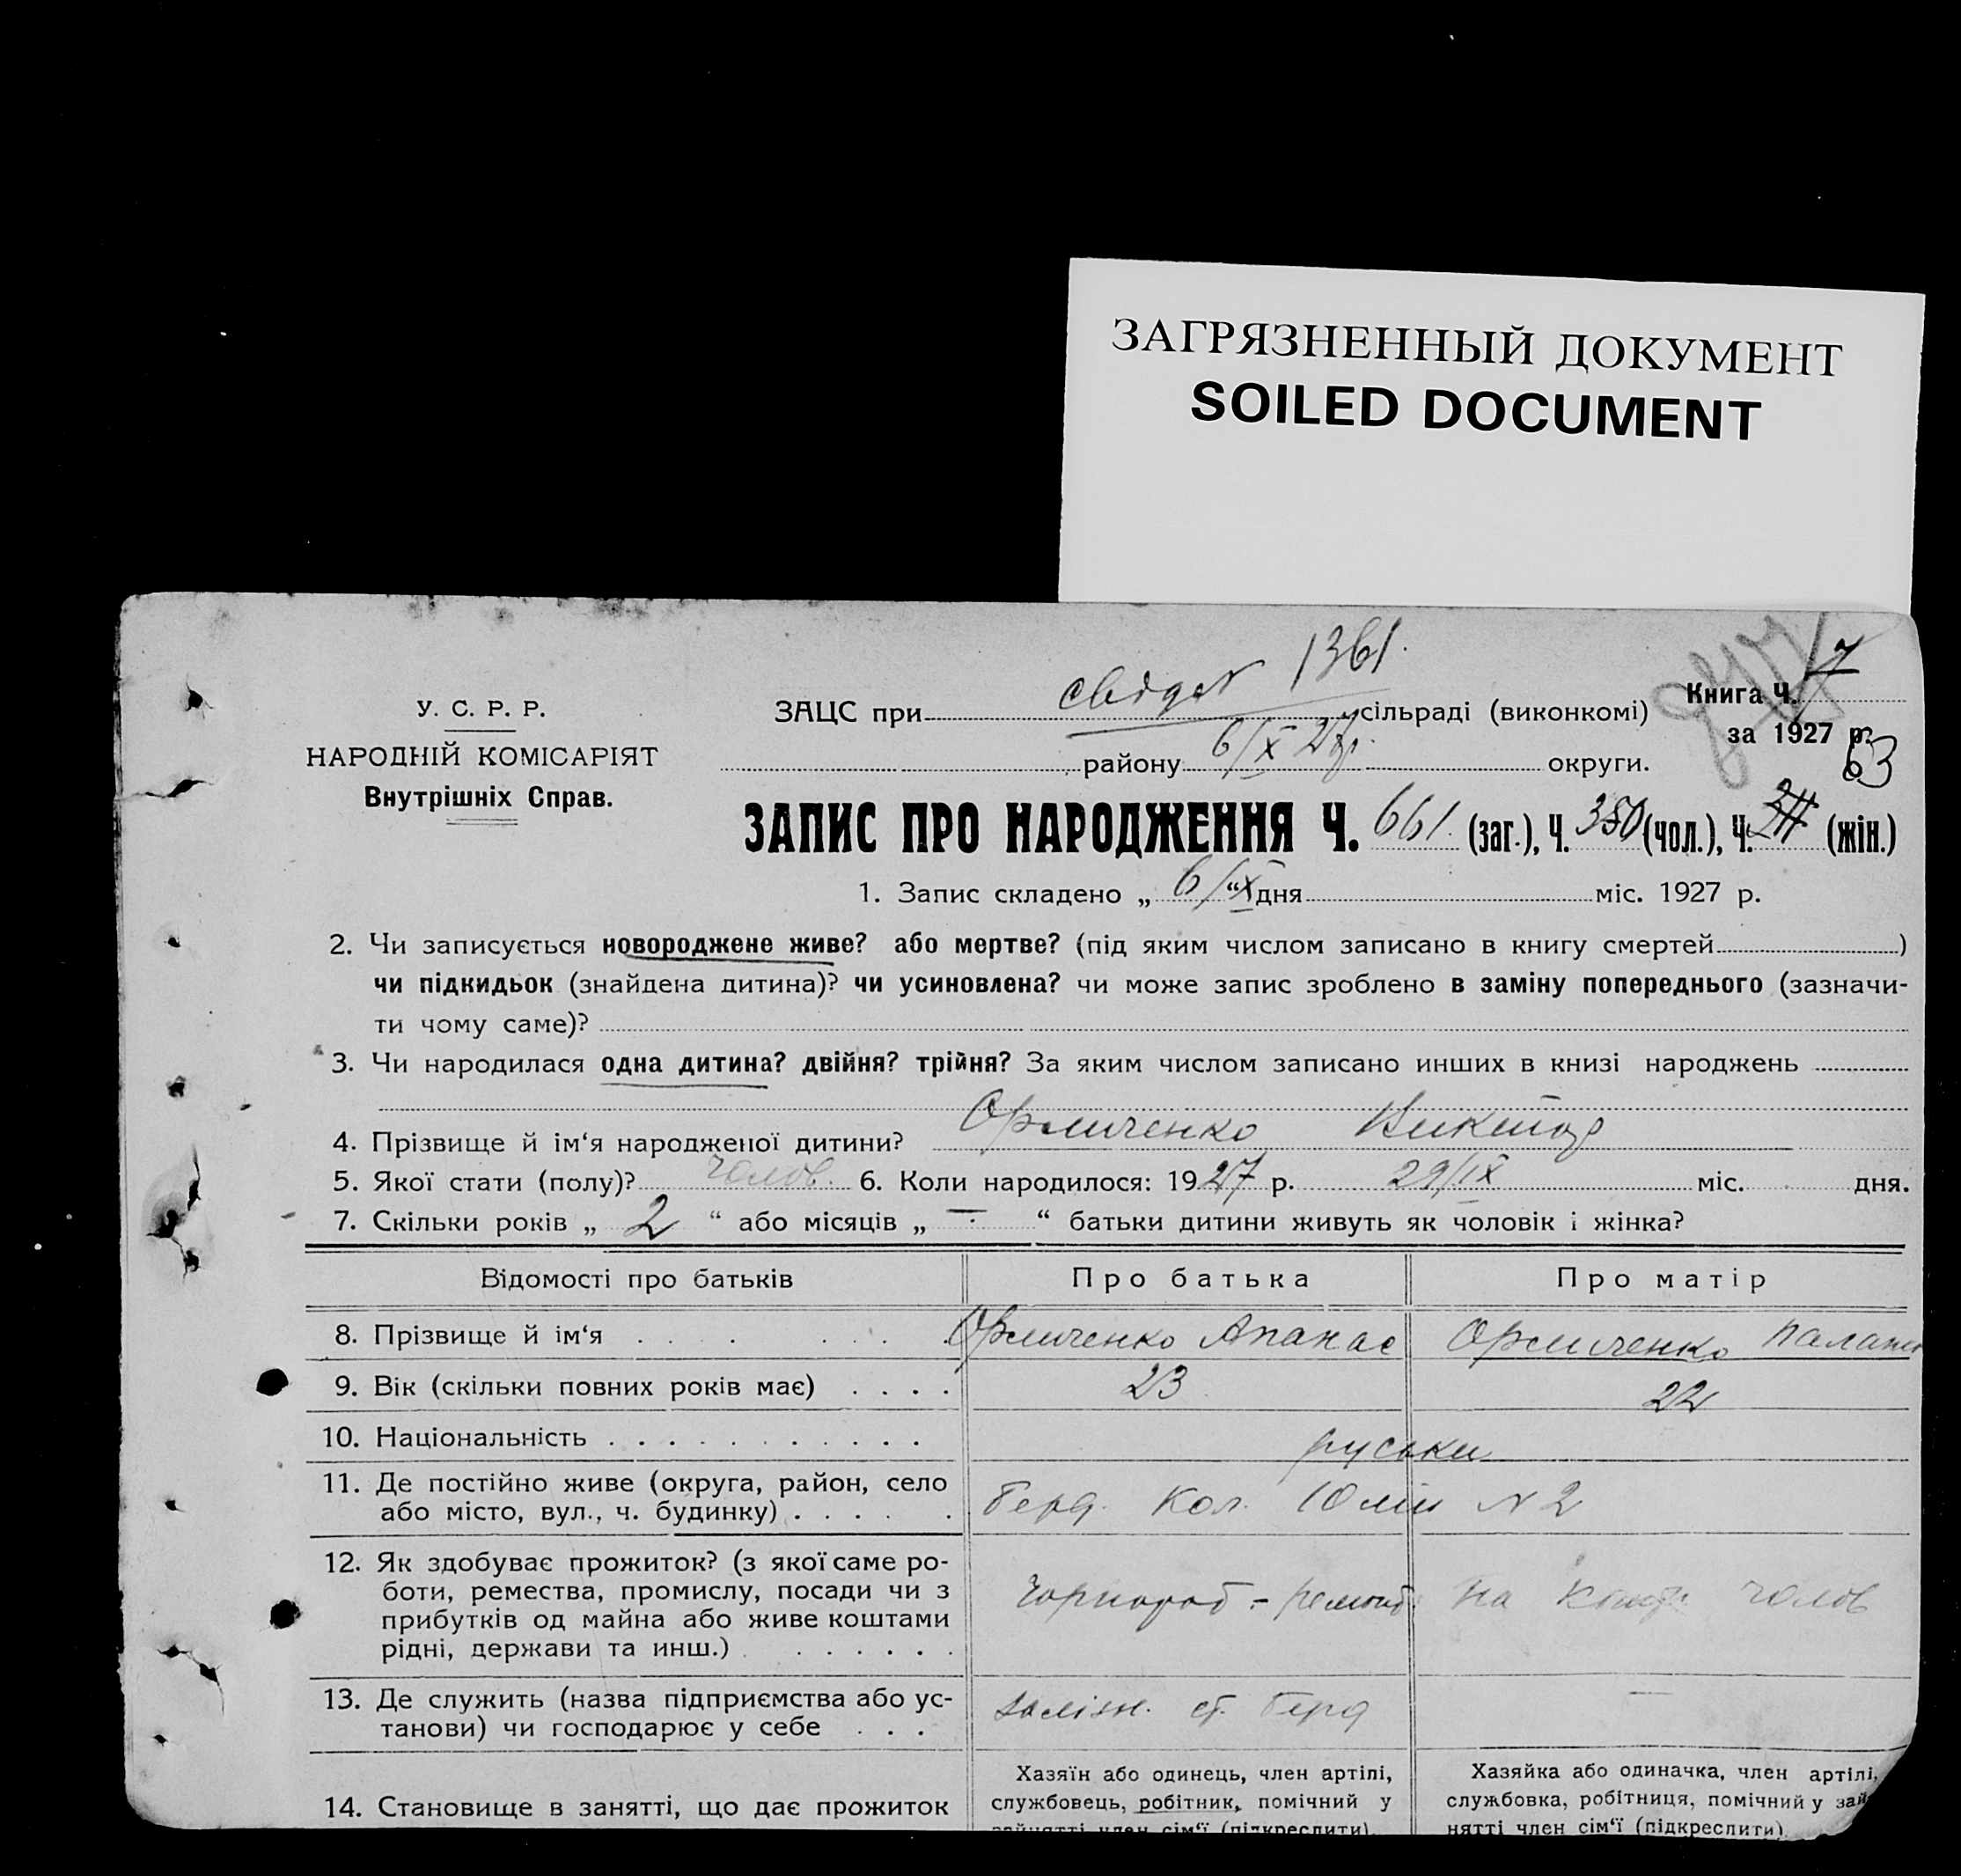 ЗАГРЯЗНЕННЫЙ ДОКУМЕНТ
SOILED DOCUMENT
1361.
У. С. Р. Р.
НАРОДНІЙ КОМІСАРІЯТ
Внутрішніх Справ.
ЗАЦС при сільраді (виконкомі)
Книга Ч. 7
за 1927 р.
району 6/X 27р. округи.
63
ЗАПИС ПРО НАРОДЖЕННЯ Ч. 661. (заг.), Ч. 350 (чол.), Ч. (жін.)
1. Запис складено „ 6/X “ дня міс. 1927 р.
2. Чи записується новороджене живе? або мертве? (під яким числом записано в книгу смертей )
чи підкидьок (знайдена дитина)? чи усиновлена? чи може запис зроблено в заміну попереднього (зазначи-
ти чому саме)?
3. Чи народилася одна дитина? двійня? трійня? За яким числом записано инших в книзі народжень
4. Прізвище й ім‘я народженої дитини? Виктор
5. Якої стати (полу)? чолов. 6. Коли народилося: 1927 р. 29/IX міс. дня.
7. Скільки років „ 2 “ або місяців „ — “ батьки дитини живуть як чоловік і жінка?
Відомості про батьків Про батька Про матір
8. Прізвище й ім‘я Апанас
9. Вік (скільки повних років має) 23 22
10. Національність руськи
11. Де постійно живе (округа, район, село
або місто, вул., ч. будинку) Берд. Кол. N 2
12. Як здобуває прожиток? (з якої саме ро-
боти, ремества, промислу, посади чи з
прибутків од майна або живе коштами
рідні, держави та инш.) Чорнороб - ремонт. на чолов
13. Де служить (назва підприємства або ус-
танови) чи господарює у себе заліз. ст. Берд —
14. Становище в занятті, що дає прожиток
Хазяїн або одинець, член артілі,
службовець, робітник, помічний у
зайнятті член сім‘ї (підкреслити).
Хазяйка або одиначка, член артілі,
службовка, робітниця, помічний у зай
нятті член сім‘ї (підкреслити)